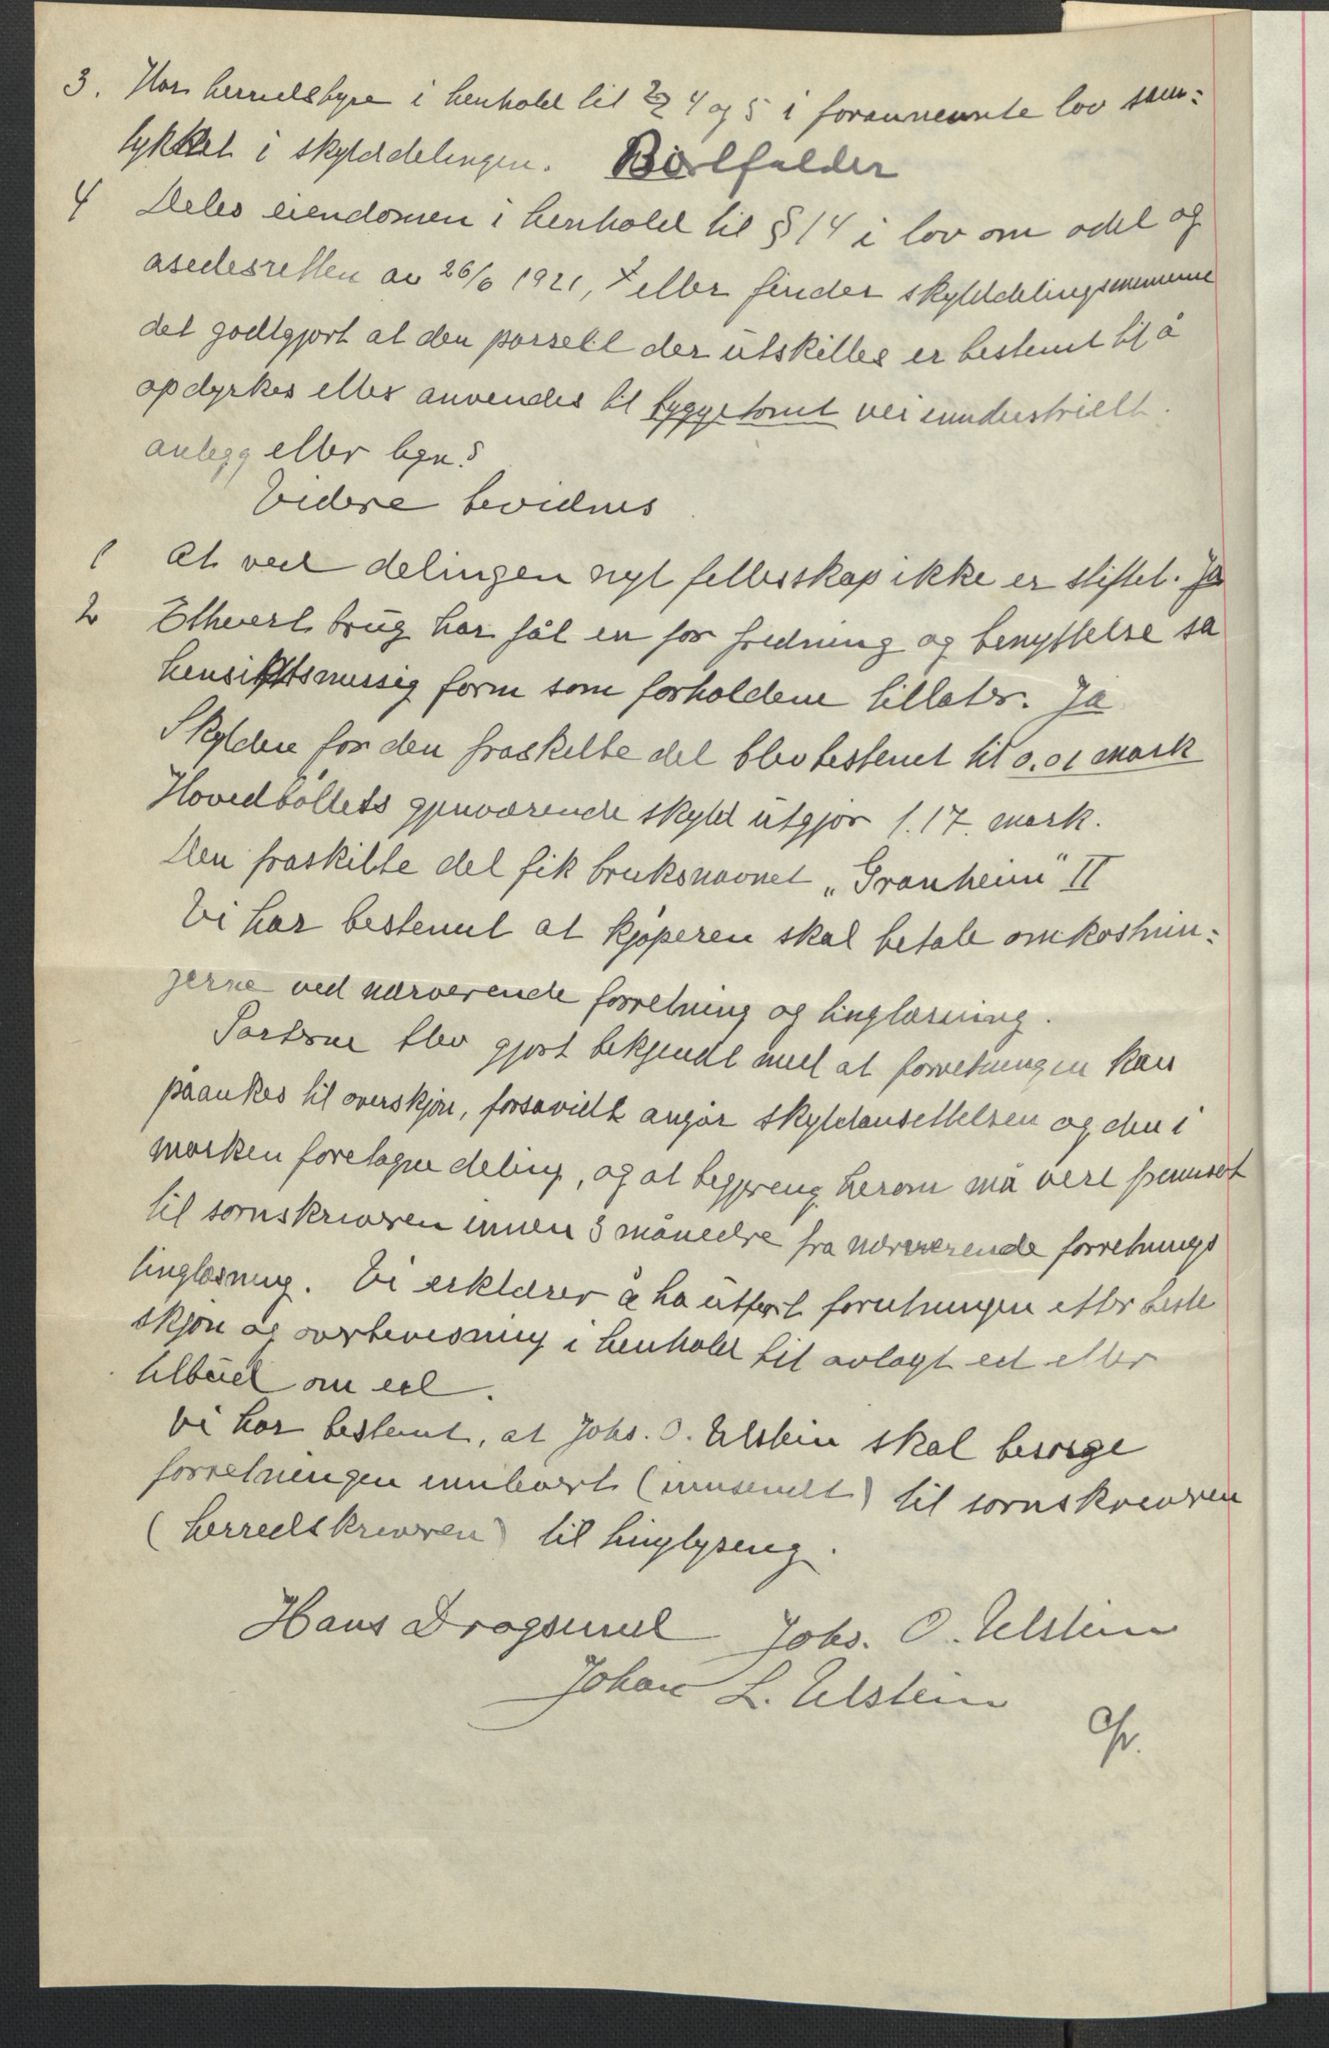 3. Har herredstyre i henhold til §§ 4 og 5 i forannevnte lov sam=
tykket i skylddelingen. Bortfalder
4 Deles eiendomen i henhold til § 14 i lov om odel og
åsedesretten av 26/6 1921, eller finder skylddelingsmennene
det godtgjort at den parsell der utskilles er bestemt til å
opdyrkes eller anvendes til byggetomt vei inndustrielt
anlegg eller lign?
Videre bevidnes
1 At ved delingen nyt fellesskap ikke er stiftet. Ja
2 Ethvert brug har fåt en for fredning og benyttelse sa
hensiktsmessig form som forholdene tillater. Ja
Skylden for den fraskilte del blev bestemt til 0.01 mark
Hovedbøllets gjenværende skyld utgjør 1.17 mark.
Den fraskilte del fik bruksnavnet „Granheim" II
Vi har bestemt at kjøperen skal betale omkostnin=
gerne ved nærværende forretning og tinglæsning.
Parterne blev gjort bekjendt med at forretningen kan
påankes til overskjøn, forsavidt angår skyldansettelsen og den i
marken foretagne deling, og at begjæreng herom må vere fremsat
til sornskriveren innen 3 månedre fra nærværende forretnings
tinglæsning. Vi erklærer å ha utført forretningen efter beste
skjøn og overbevisning i henhold til avlagt ed eller
tilbud om ed.
Vi har bestemt, at Johs. O. Ulstein skal besørge
forretningen innlevert (innsendt) til sornskriveren
(herredskriveren) til tinglyseng.
Hans Dragsund Johs. O. Ulstein
Johan L. Ulstein